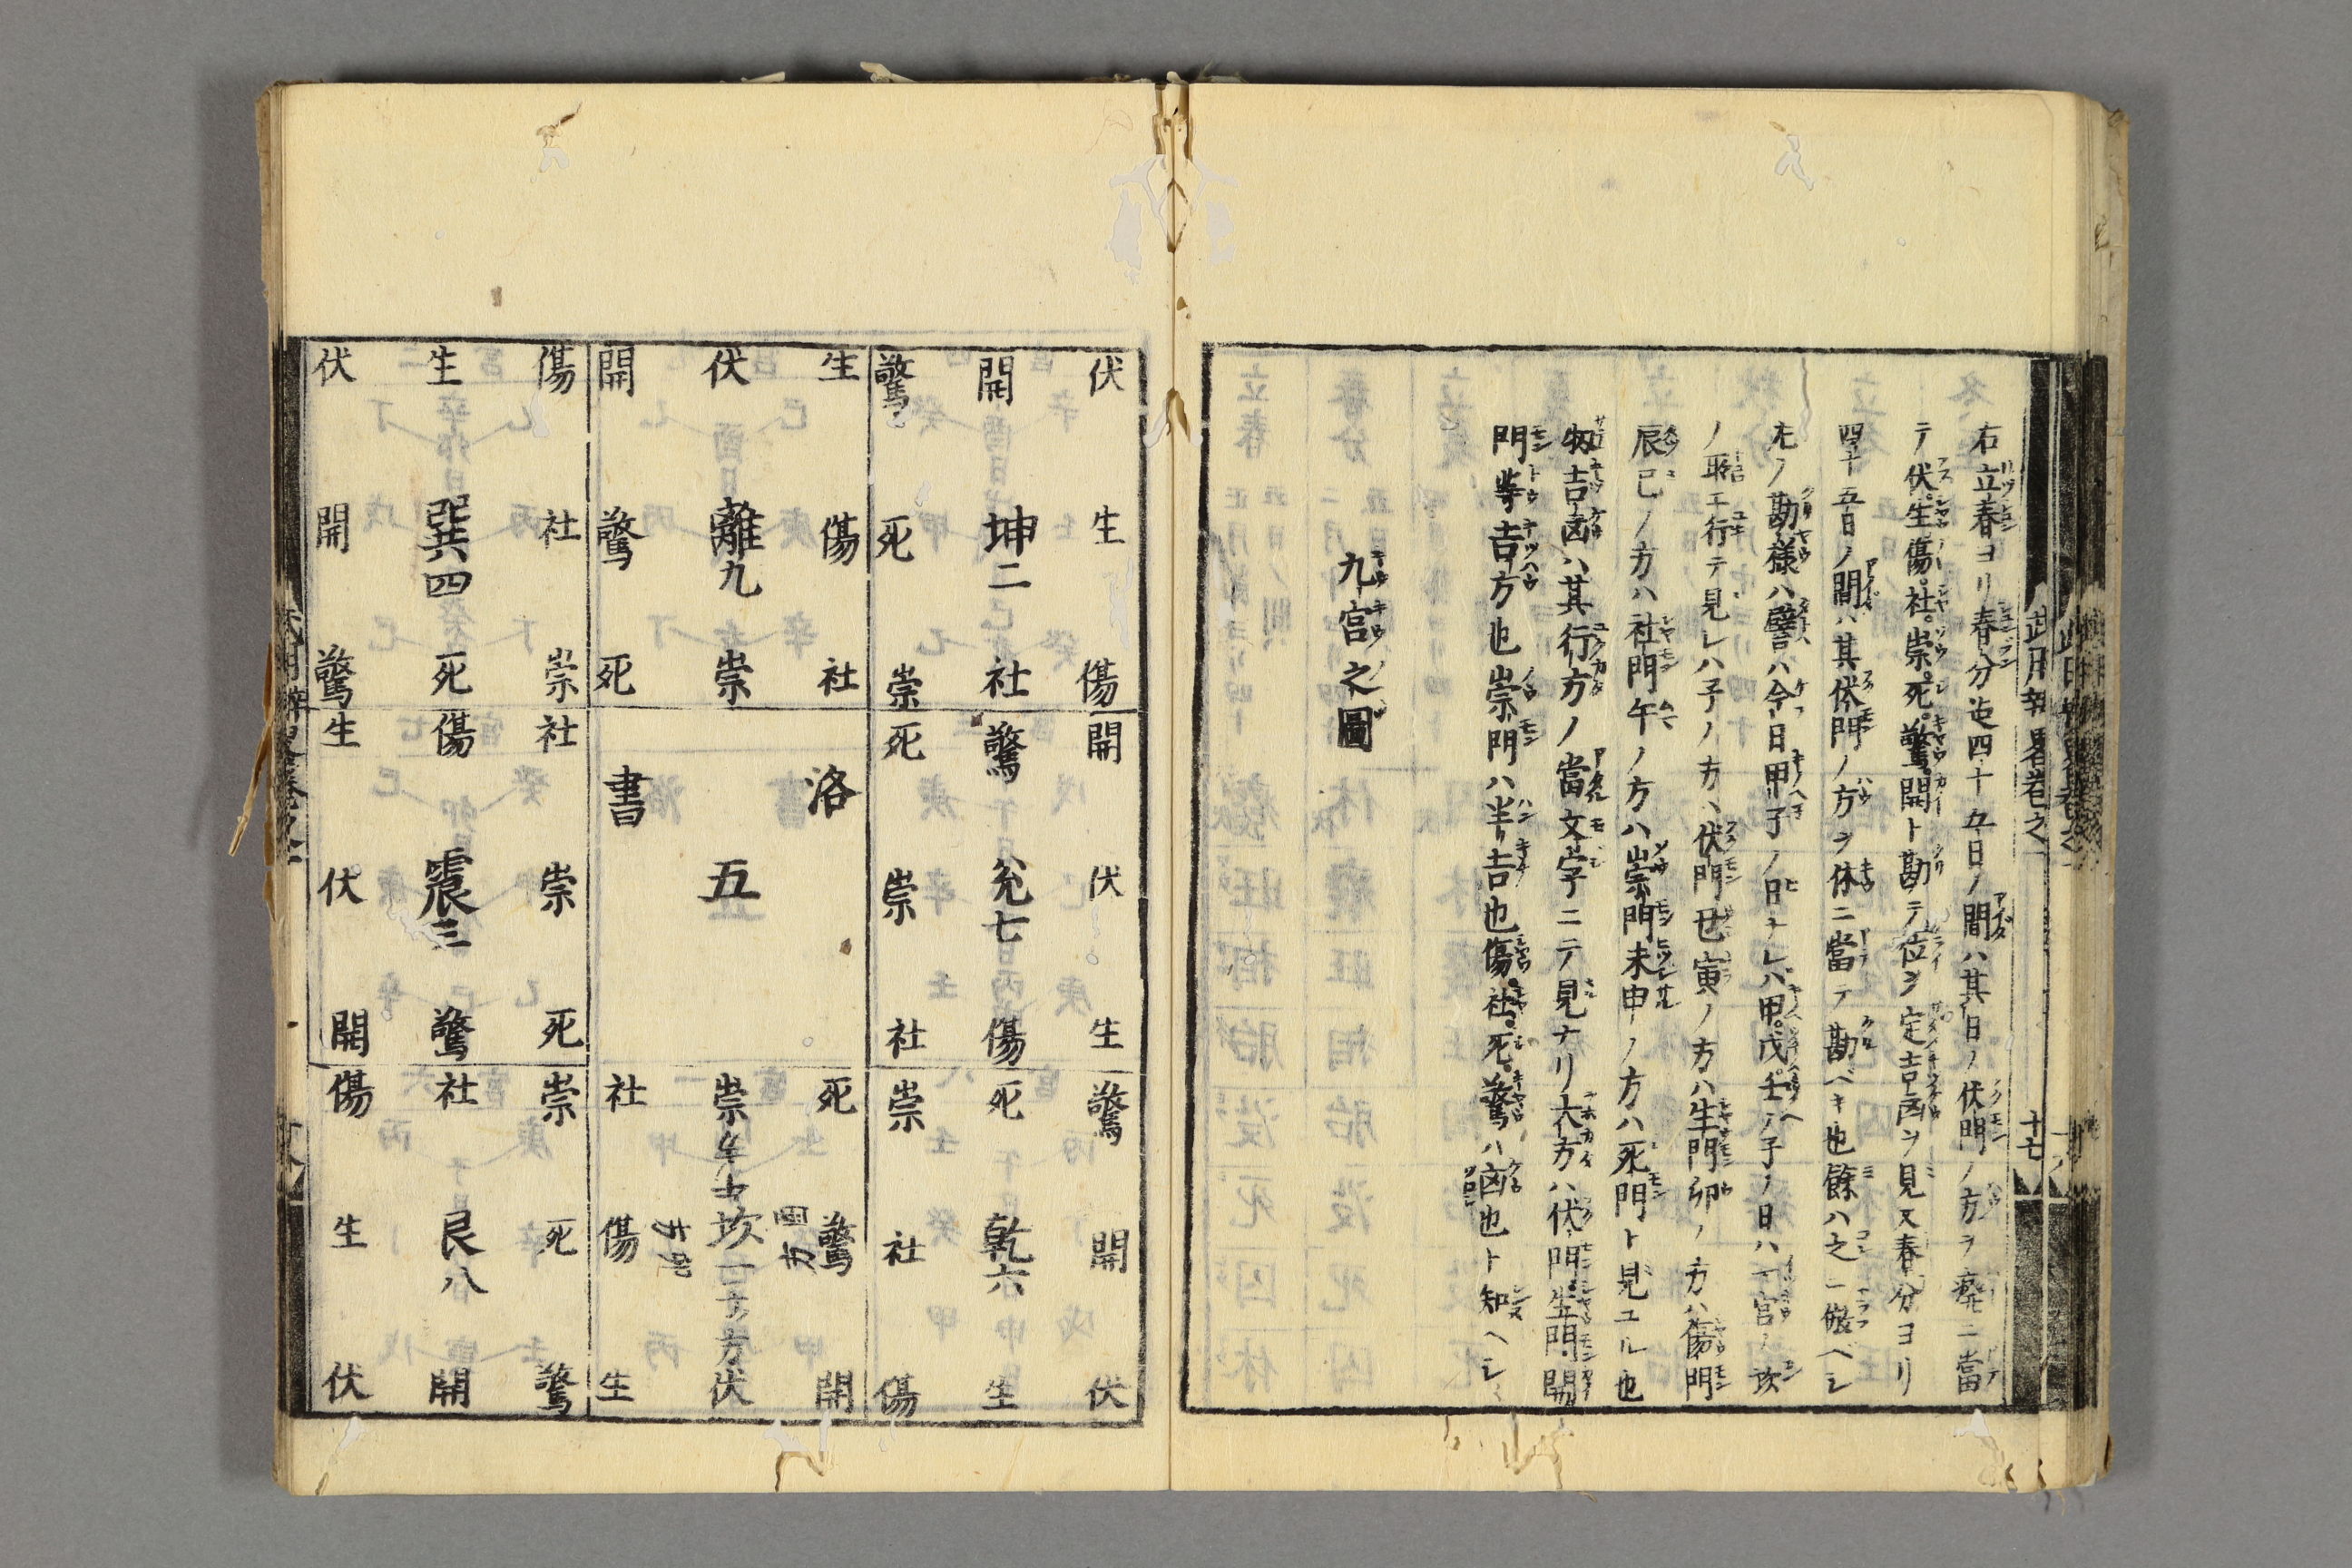 右立春ヨリ春分迄四十五日ノ間ハ其日ノ伏門ノ方ヲ廃ニ當
テ伏。生。傷。社。祟。死。驚。開ト勘テ位ヲ定吉凶ヲ見又春分ヨリ
四十五日ノ間ハ其伏門ノ方ヲ休ニ當テ勘ベキ也餘ハ之ニ傚ベシ
先ノ勘樣ハ譬ハ今日甲子ノ日ナレハ甲。戊。壬ノ子ノ日ハ一宮ノ坎
ノ取エ行テ見レハ子ノ方ハ伏門丑寅ノ方ハ生門卯ノ方ハ傷門
辰巳ノ方ハ社門午ノ方ハ祟門未申ノ方ハ死門ト見ユル也
扨吉凶ハ其行方ノ當文字ニテ見ナリ大方ハ伏門。生門。開
門等吉方也祟門ハ半吉也傷。社。死。驚ハ凶也ト知ヘシ
九宮之圖
十七
伏 開 驚
生 坤二 死
傷 社 祟
生 伏 開
傷 離九 驚
社 祟 死
傷 生 伏
社 巽四 開
祟 死 驚
開 驚 死
伏 兌七 祟
生 傷 社
洛 書
五
社 傷 生
祟 震三 伏
死 驚 開
驚 死 祟
開 乾六 社
伏 生 傷
死 祟 社
驚 坎一 傷
開 伏 生
祟 社 傷
死 艮八 生
驚 開 伏